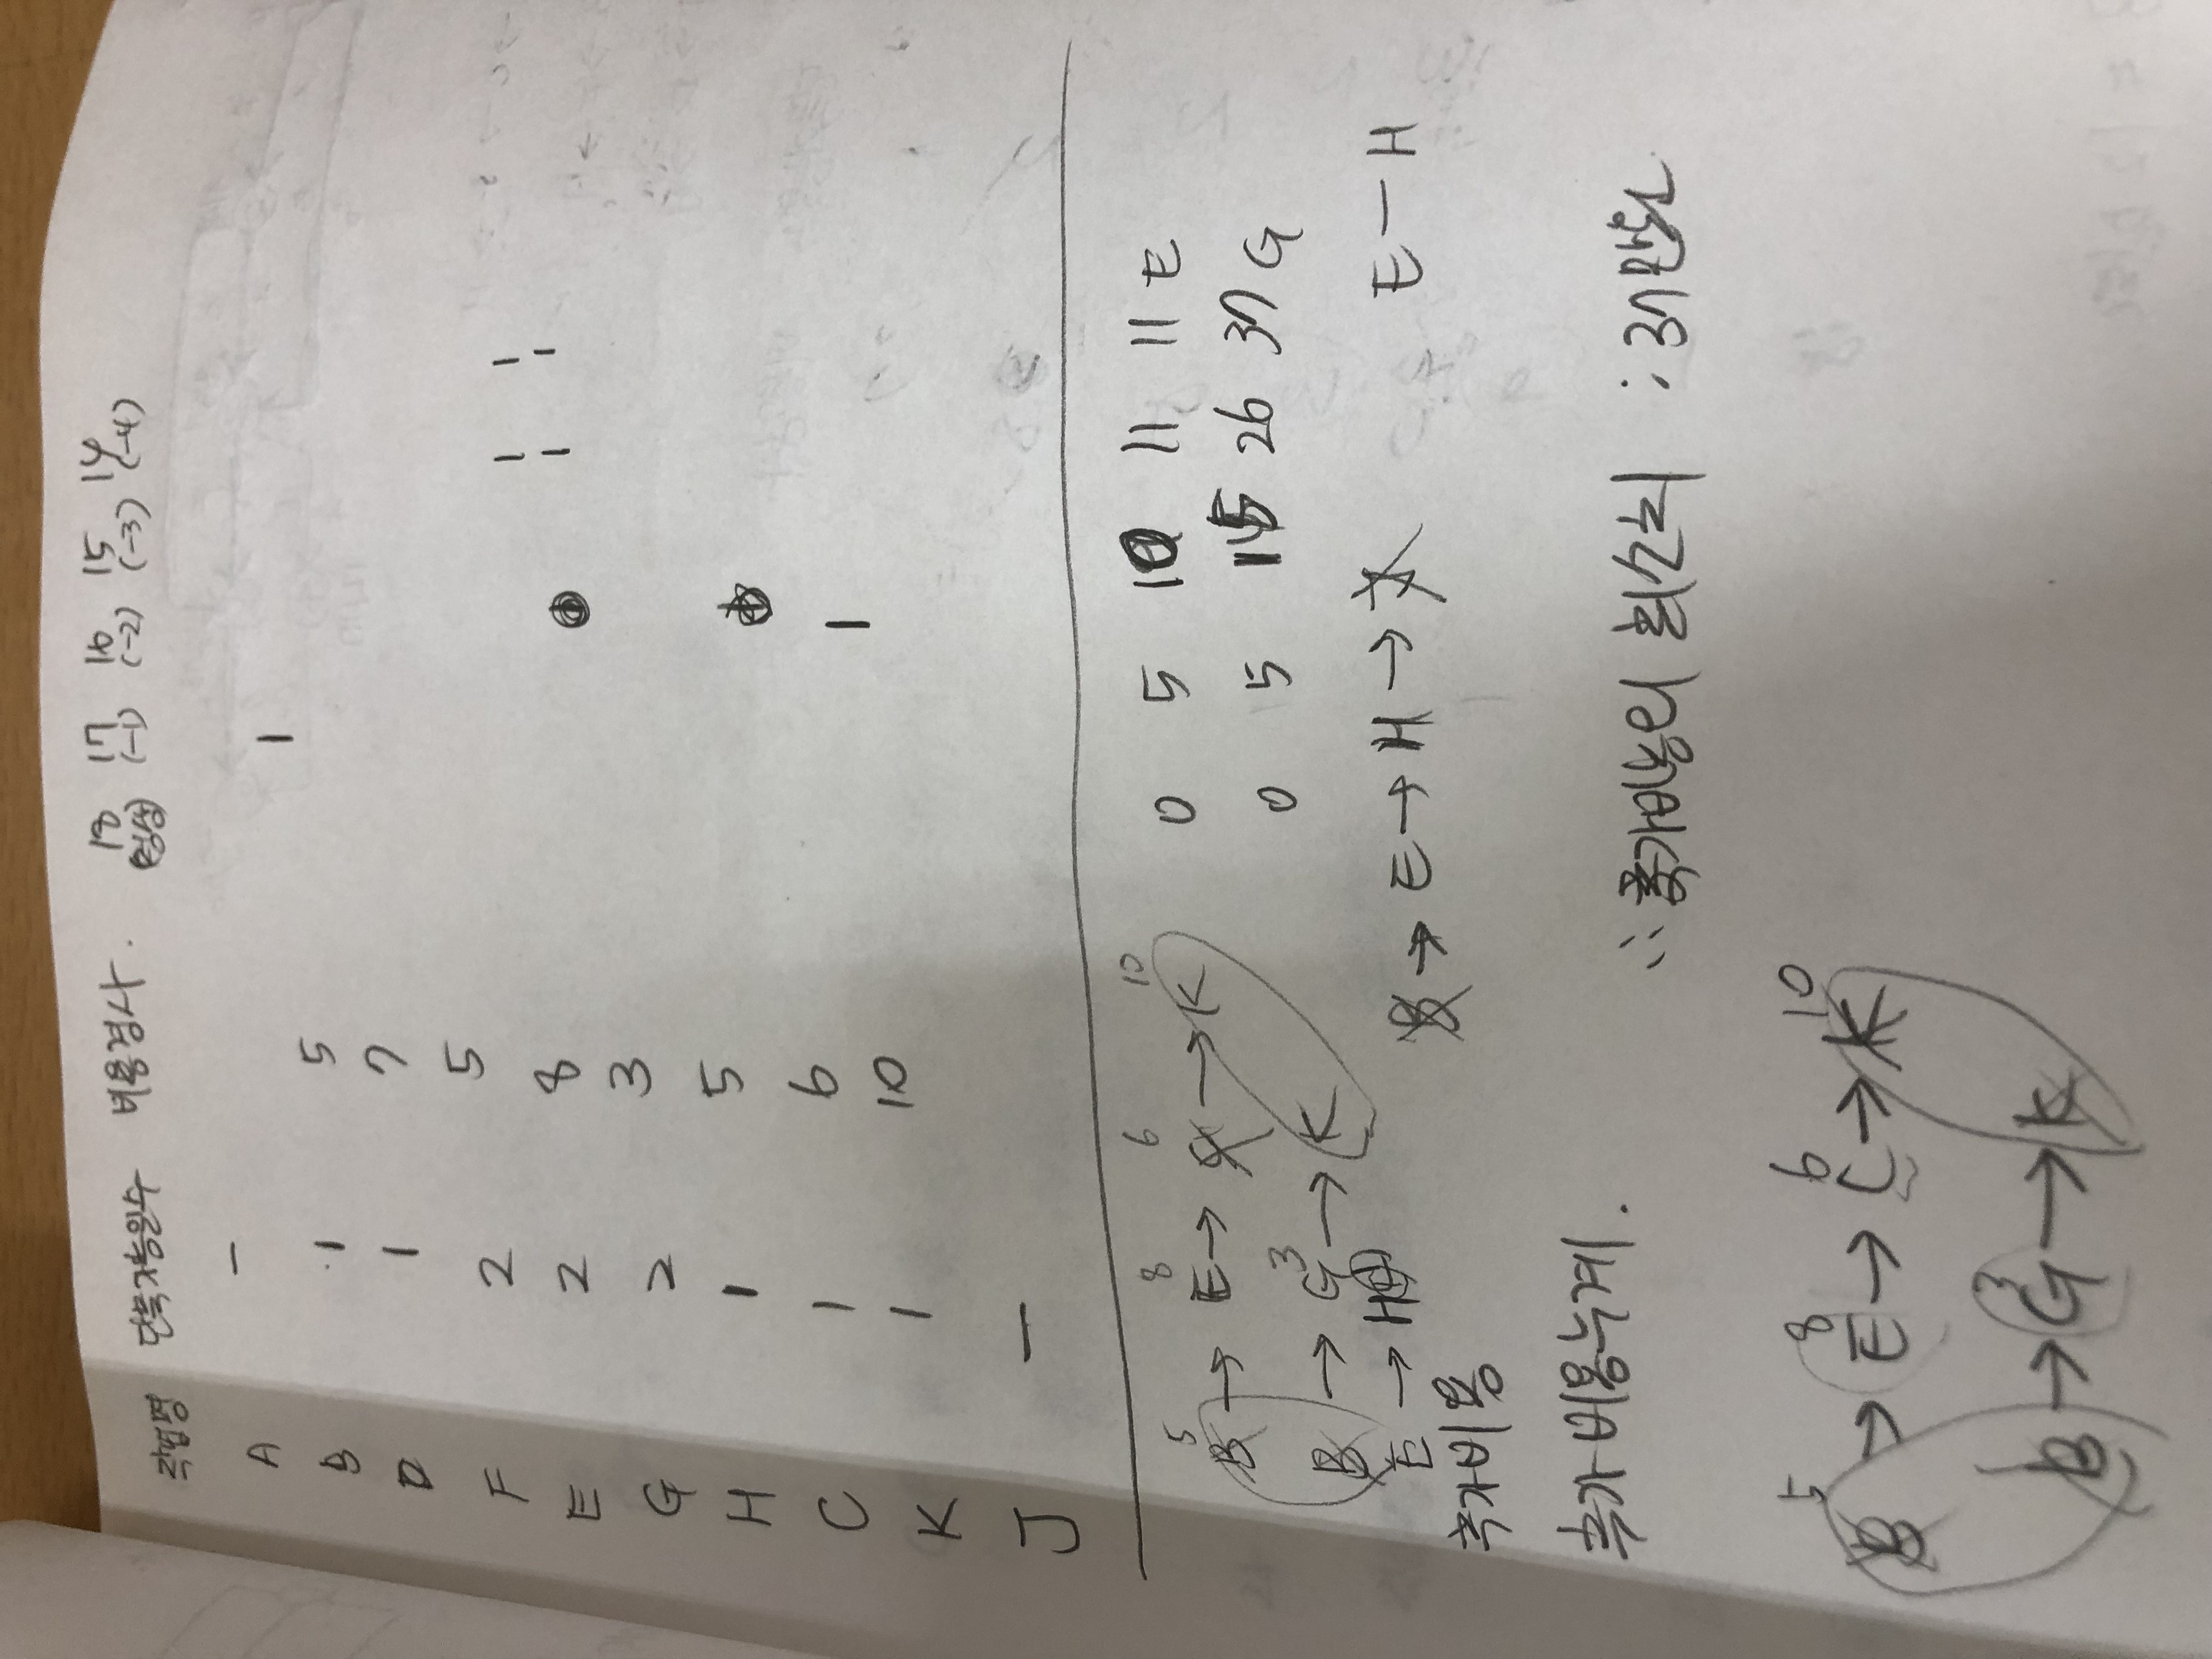 작업명 단축가능일수 비용경사. 18 17 16 15 14
정상 (-1) (-2) (-3) (-4)
A - 1
B 1 5
D 1 7
F 2 5 1 1
E 2 8 1 1
G 2 3
H 1 5
C 1 6 1
K 1 10
J -
5 8 6 10
B → E → C → K 0 5 10 11 11 E
3
B → G → K 0 5 15 26 37 G
E → H B → E → H → J E - H
추가비용
추가비용누계. ∴ 추가비용의 최솟치 : 37만원
5 8 6 10
B → E → C → K
3
B → G → K